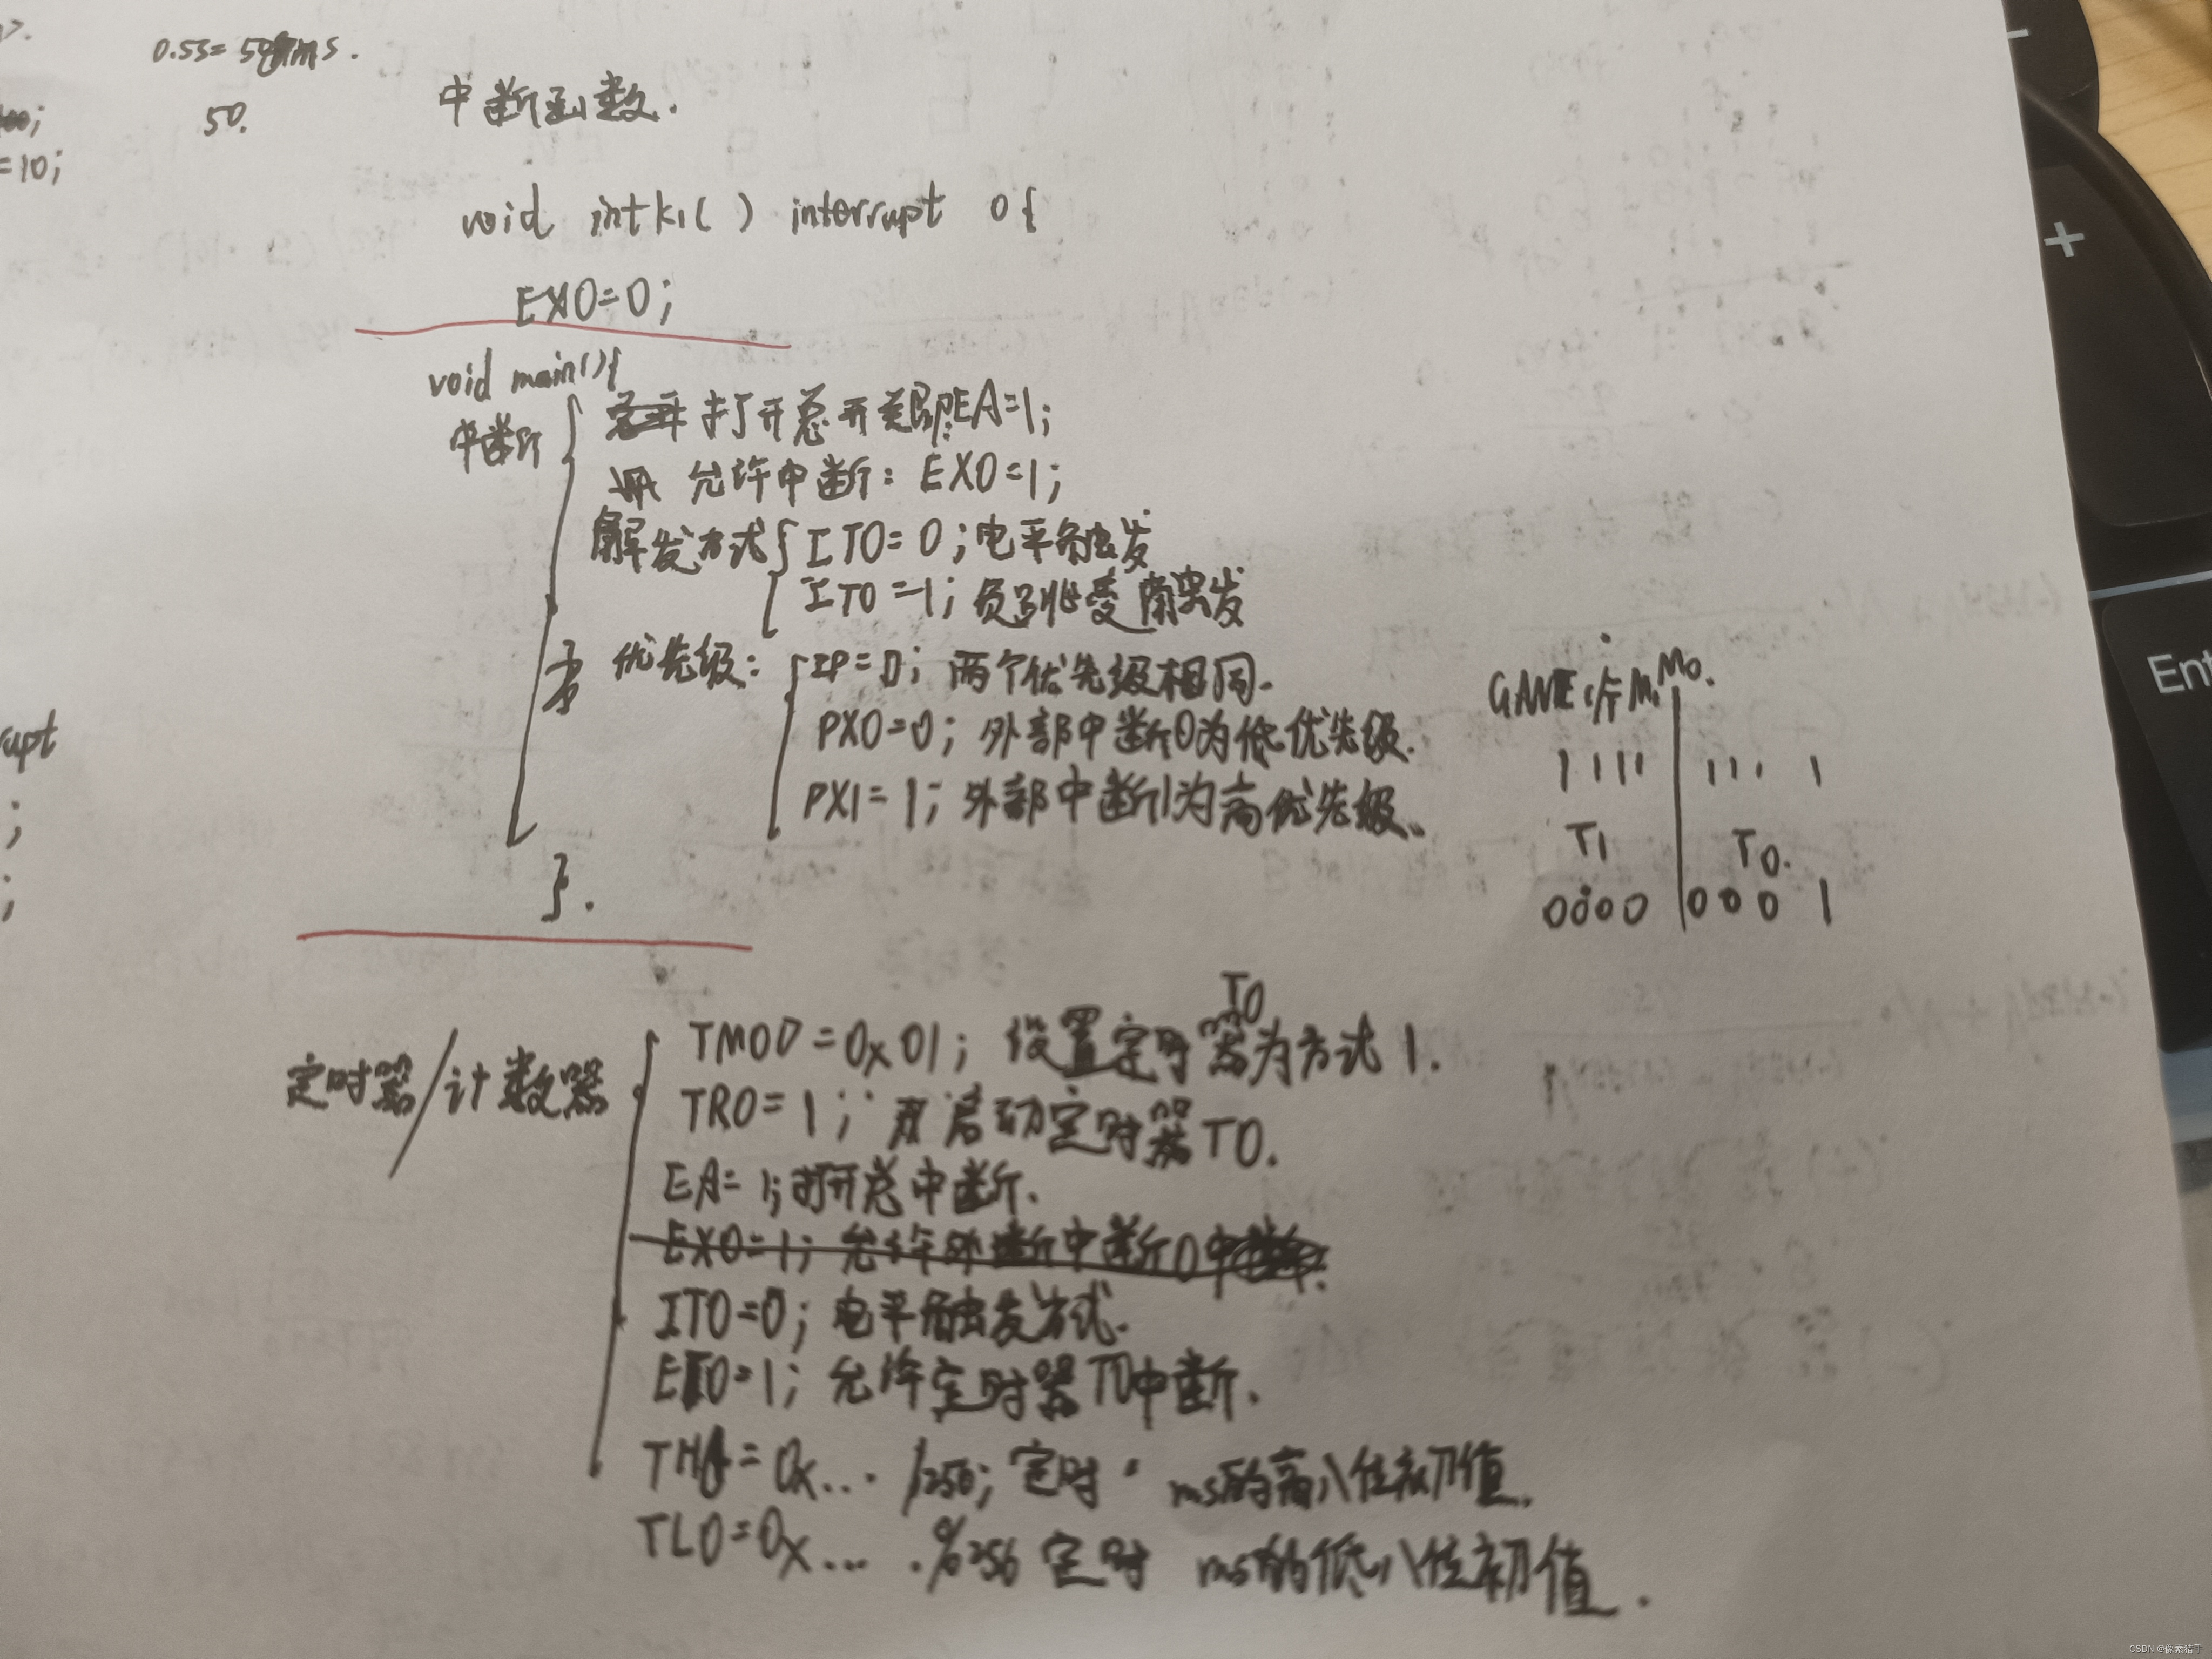 0.5s=500ms.
50.
=10;
中断函数.
void intk1( ) interrupt 0{
EX0=0;
void main(){
中断
打开总开关即:EA=1;
允许中断: EX0=1;
触发方式 IT0=0;电平触发
IT0=1; 负跳变触发
优先级: IP=0; 两个优先级相同.
PX0=0; 外部中断0为低优先级.
PX1=1; 外部中断1为高优先级.
}.
M1 M0.
1111 111 1
T1 T0.
0000 000 1
upt
;
;
定时器/计数器
TMOD=0x01; 设置定时器T0为方式1.
TR0=1; 启动定时器T0.
EA=1;打开总中断.
EX0=1; 允许外断中断0中断.
IT0=0; 电平触发方式.
ET0=1; 允许定时器T0中断.
TH0=0x... /256; 定时 ms的高八位初值.
TL0=0x... .%256 定时 ms的低八位初值.
+
Ent
CSDN @像素猎手